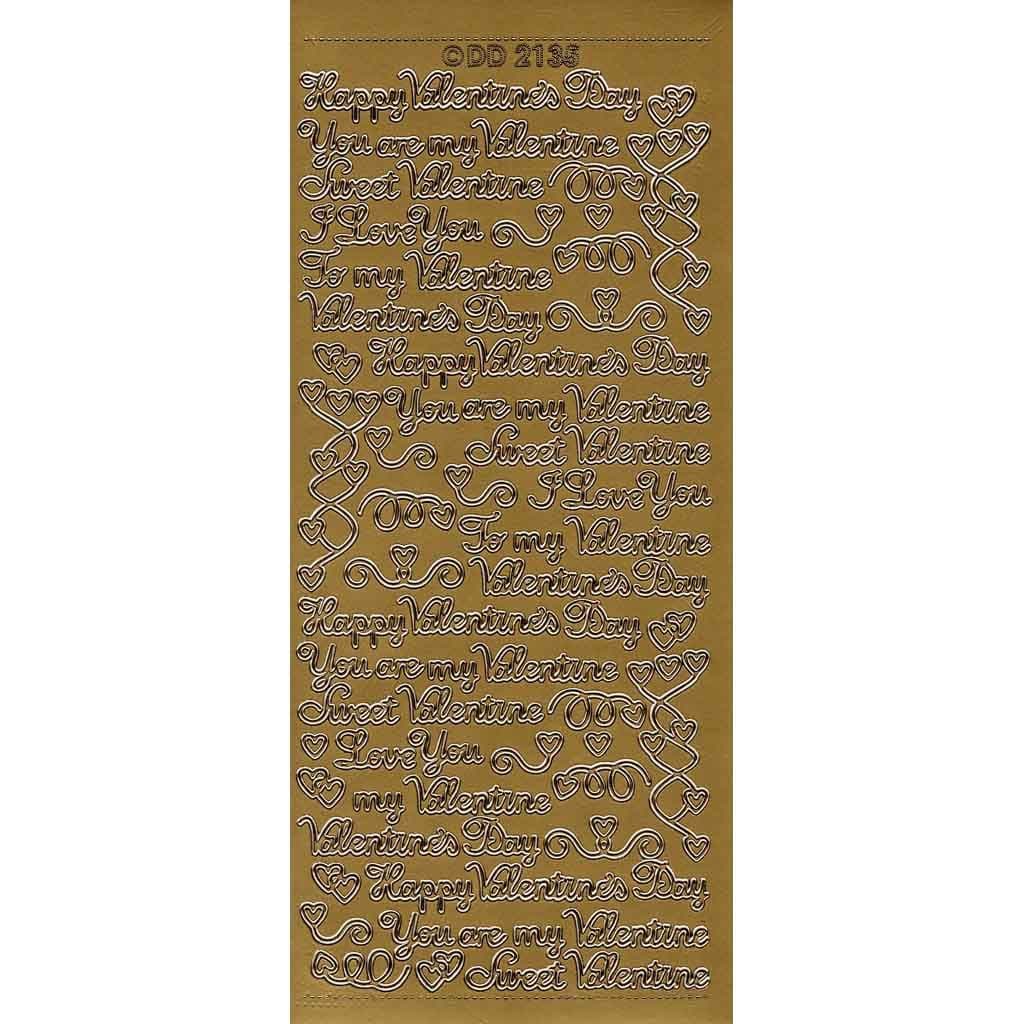 ©DD 2135
Happy Valentine's Day
You are my Valentine
Sweet Valentine
I Love You
To my Valentine
Valentine's Day
Happy Valentine's Day
You are my Valentine
Sweet Valentine
I Love You
To my Valentine
Valentine's Day
Happy Valentine's Day
You are my Valentine
Sweet Valentine
Love You
my Valentine
Valentine's Day
Happy Valentine's Day
You are my Valentine
Sweet Valentine